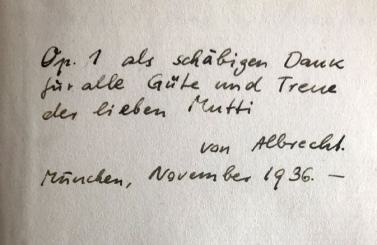 Op. 1 als schäbigen Dank
für alle Güte und Treue
der lieben Mutti
von Albrecht.
München, November 1936. —